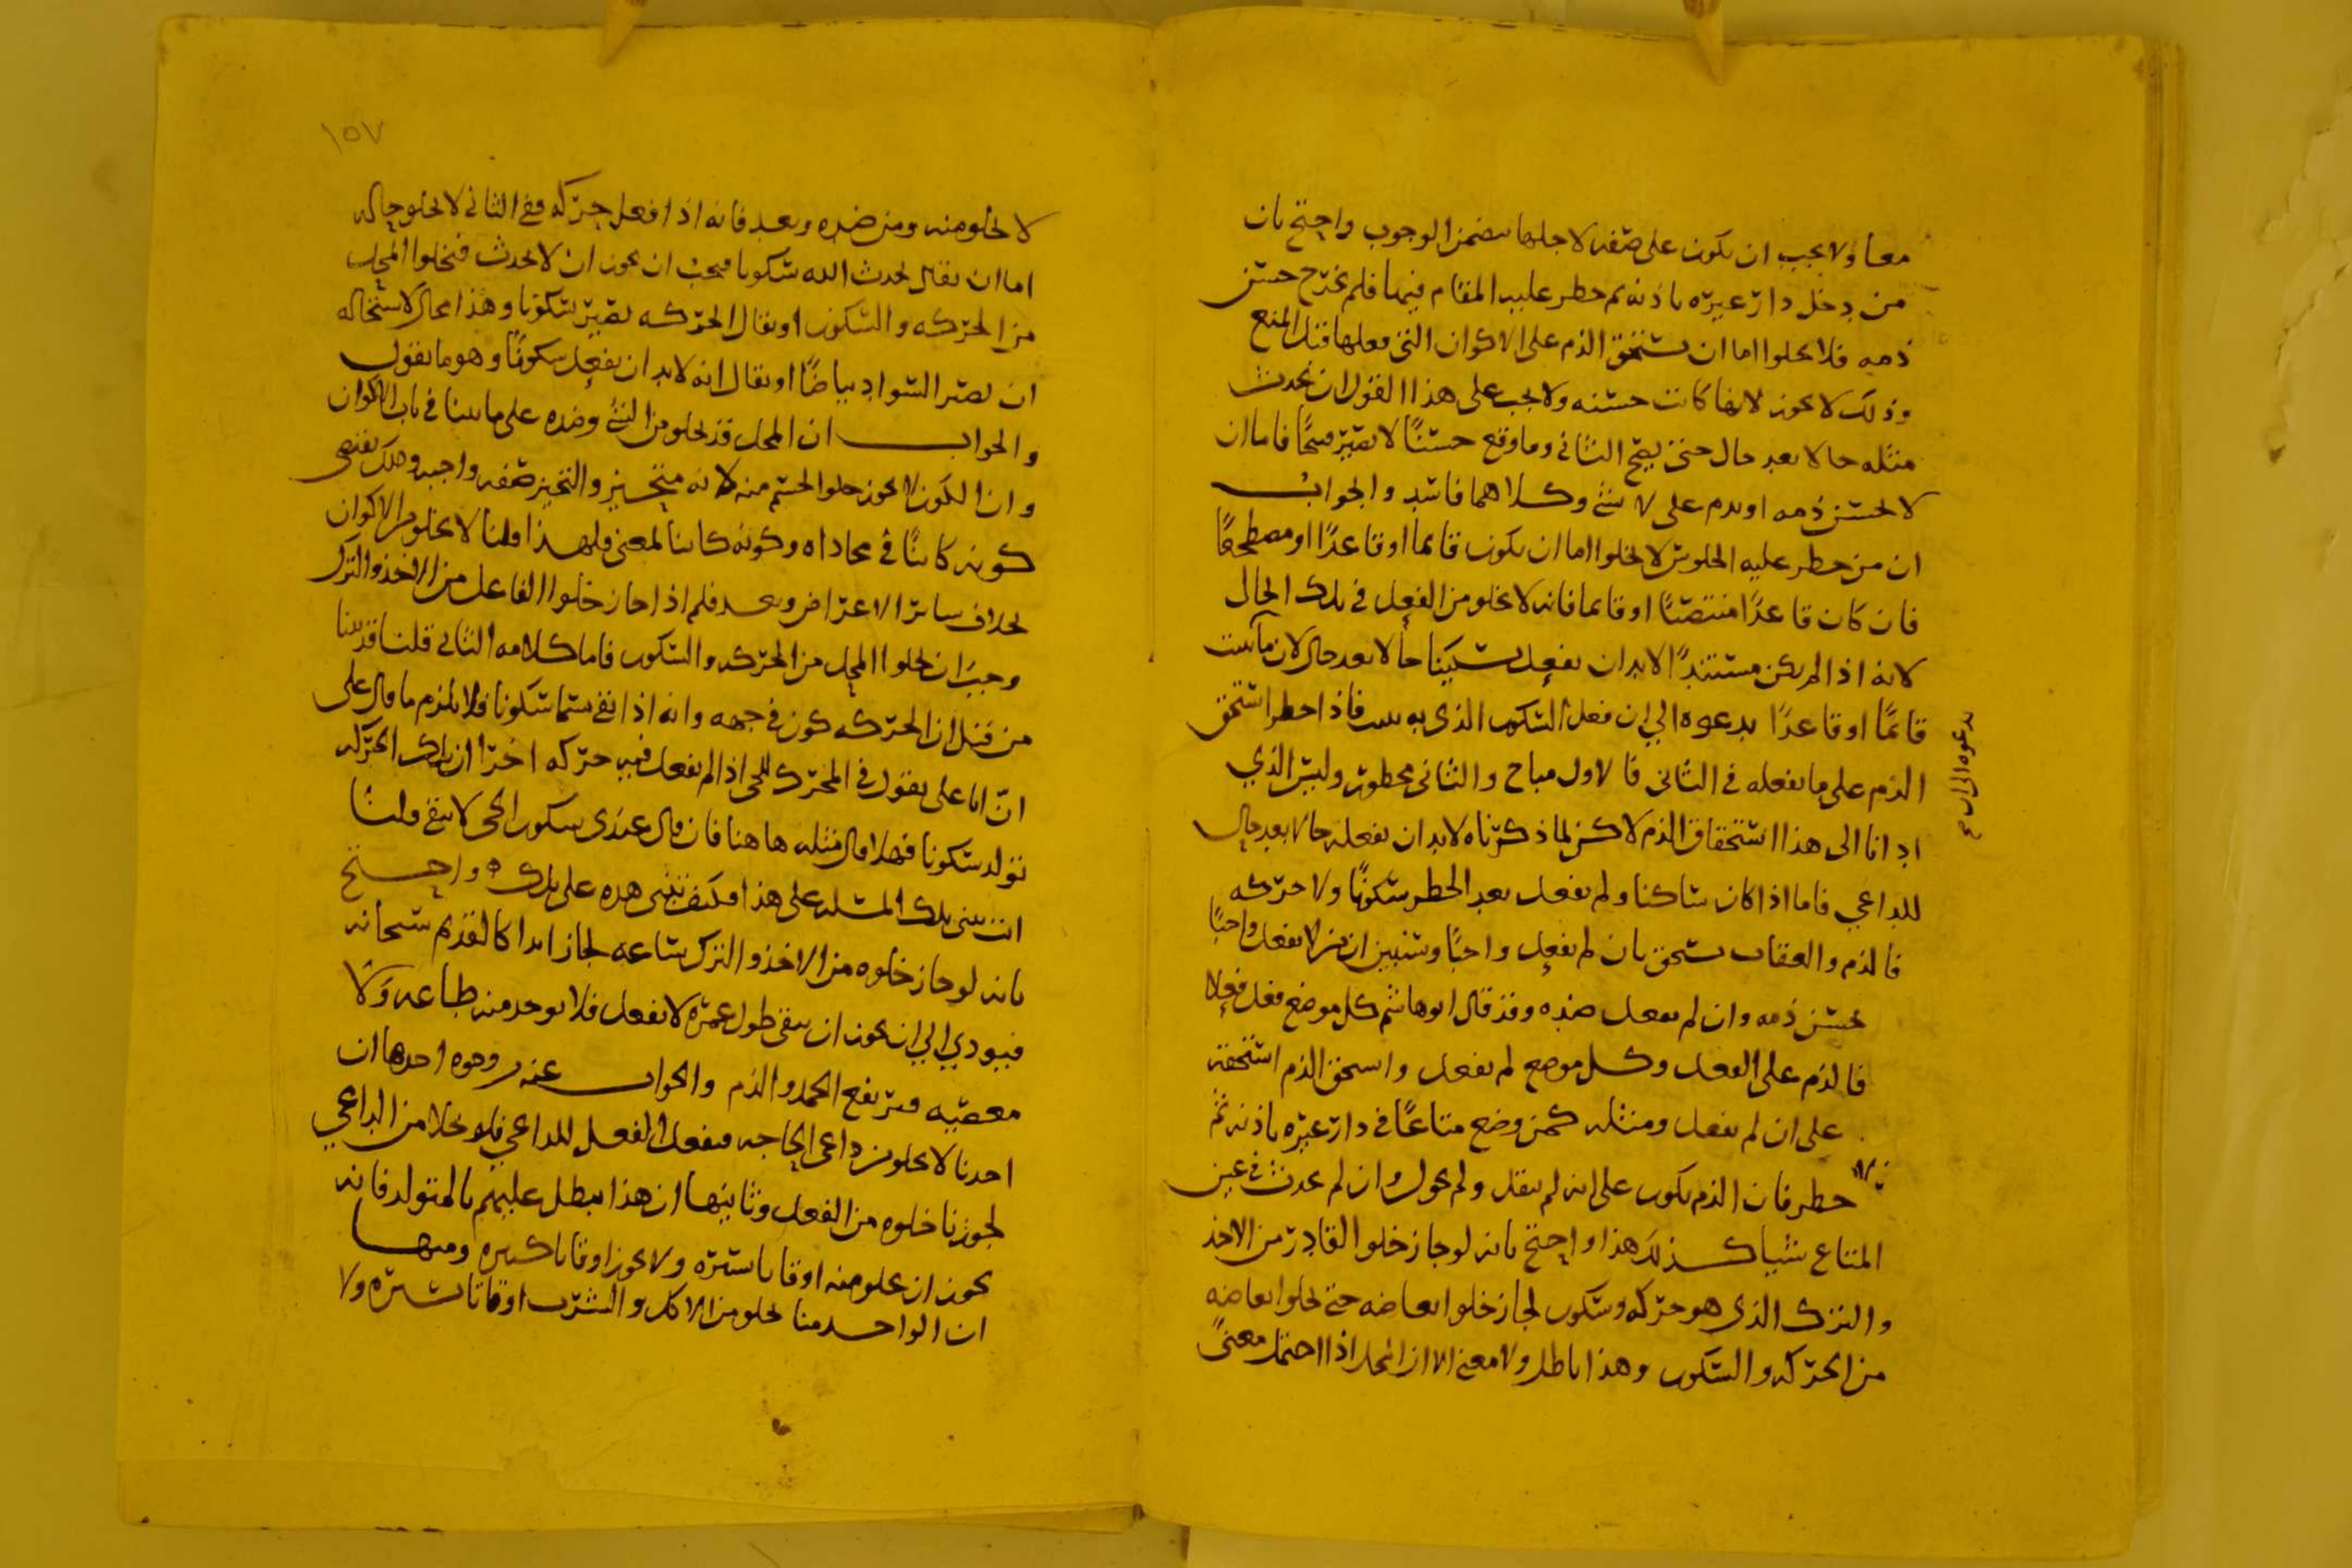 معا ولا يجب ان يكون على صفه لاجلها تتضمن الوجوب واحتج بان
من دخل دار غيره باذنه ثم حظر عليه المقام فيها فلم يخرج حسن
ذمه فلا يخلوا اما ان يستحق الذم على الاكوان التي فعلها قبل المنع
وذلك لا يجوز لانها كانت حسنه ولا يجب على هذا القول ان يحدث
مثله حالا بعد حال حتى يقبح الثاني وما وقع حسنًا لا يصير قبيحًا فاما ان
لا يحسن ذمه او يذم على لا شي وكلاهما فاسد والجواب
ان من حظر عليه الجلوس لا يخلوا اما ان يكون قايما او قاعدًا او مضطجعًا
فان كان قاعدًا منتصبًا او قايما فانه لا يخلو من الفعل في تلك الحال
لانه اذا لم يكن مستندًا لا بد ان يفعل تسكينا حالا بعد حال لان ما يثبت
قائمًا او قاعدًا يدعوه الي ان فعل السكون الذي به يثبت فاذا حظر استحق
يدعوه الى ان صح
الذم على ما يفعله في الثاني فالاول مباح والثاني محظور وليس الذي
ادانا الى هذا استحقاق الذم لاكن لما ذكرناه لا بد ان يفعله حالا بعد حال
للداعي فاما اذا كان ساكنا ولم يفعل بعد الحظر سكونًا ولا حركه
فالذم والعقاب يستحق بان لم يفعل واجبًا وسنبين ان من لا يفعل واجبًا
يحسن ذمه وان لم يفعل ضده وقد قال ابو هاشم كل موضع فعل فعلا
فالذم على الفعل وكل موضع لم يفعل واستحق الذم استحقه
على ان لم يفعل ومثله كمن وضع متاعًا في دار غيره باذنه ثم
حظر فان الذم يكون على انه لم ينقل ولم يحول وان لم يحدث في عين
المتاع شيا كذلك هذا واحتج بانه لو جاز خلوا القادر من الاخذ
والترك الذي هو حركه وسكون لجاز خلوا ابعاضه حتى يخلوا ابعاضه
من الحركه والسكون وهذا باطل ولا معنى الا ان المحل اذا احتمل معنىً
١٥٧
لا يخلو منه ومن ضده وبعد فانه اذا فعل حركه ففي الثاني لا يخلو حاله
اما ان يقال يحدث الله سكونا فيجب ان يجوز ان لا يحدث فيخلوا المحل
من الحركه والسكون او يقال الحركه تصير سكونا وهذا محال لاستحاله
ان يصير السواد بياضًا او يقال انه لا بد ان يفعل سكونًا وهو ما نقول
والجواب ان المحل قد يخلو من الشي وضده على ما بينا في باب الاكوان
وان الكون لا يجوز خلوا الجسم منه لانه متحيز والتحيز صفه واجبه وتلك تقتضي
كونه كائنًا في محاذاه وكونه كائنا لمعنى فلهذا قلنا لا يخلو من الاكوان
بخلاف سائر الاعراض وبعد فلم اذا جاز خلوا الفاعل من الاخذ والترك
وجب ان يخلوا المحل من الحركه والسكون فاما كلامه الثاني قلنا قد بينا
من قبل ان الحركه كون في جهه وانه اذا بقي سما سكونا فلا يلزم ما قال على
انّ ابا علي يقول في المحرك للحي اذا لم يفعل فيه حركه اخرا ان تلك الحركه
تولد سكونا فهلا قال مثله ها هنا فان قال عندي سكون الحي لا يبقى قلنا
انت تبني تلك المسله على هذا فكيف تبني هذه على تلك ٥ واحتج
بانه لو جاز خلوه من الاخذ والترك ساعه لجاز ابدا كالقديم سبحانه
فيودي الي ان يجوز ان يبقى طول عمره لا يفعل فلا يوجد منه طاعه ولا
معصيه فيرتفع الحمد والذم والجواب عنه وجوه احدها ان
احدنا لا يخلو من داعي الحاجه فيفعل الفعل للداعي فلو خلا من الداعي
لجوزنا خلوه من الفعل وثانيها ان هذا يبطل عليهم بالمتولد فانه
يجوز ان يخلو منه اوقاتا يسيره ولا يجوز اوقاتا كثيره ومنها
ان الواحد منا يخلو من الاكل والشرب اوقاتا يسيره ولا